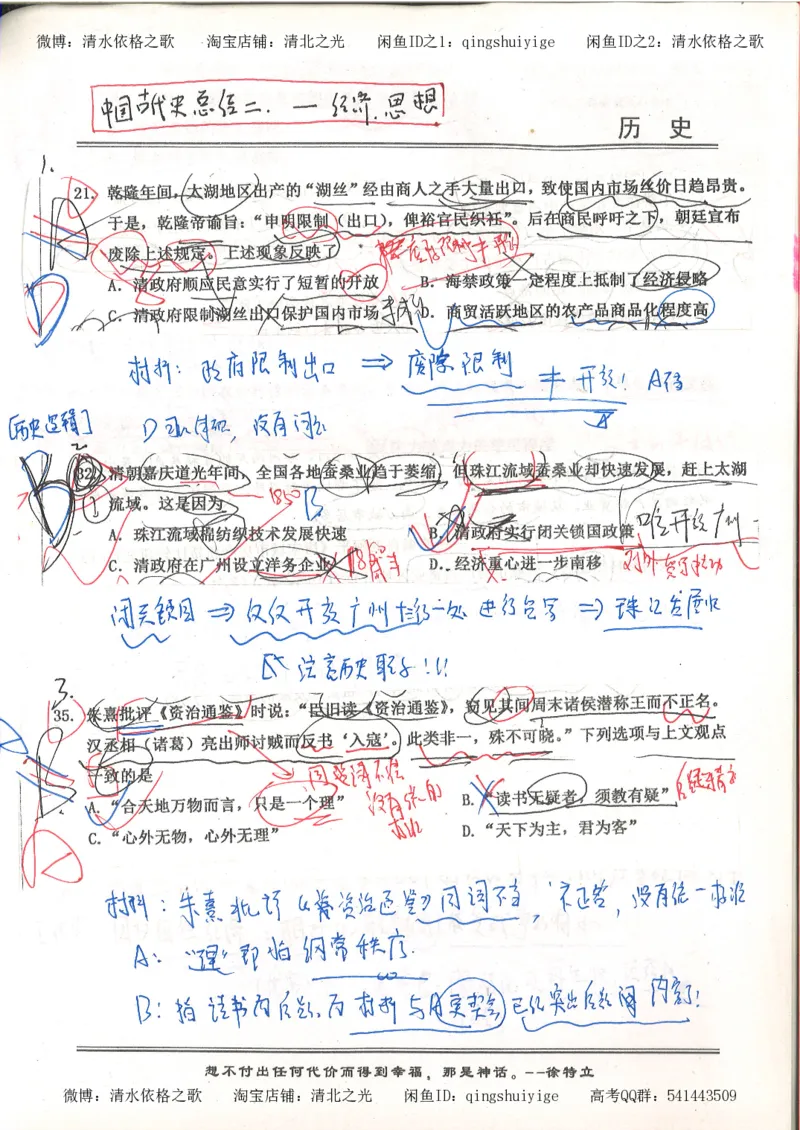 微博：清水依格之歌 淘宝店铺：清北之光 闲鱼ID之1：qingshuiyige 闲鱼ID之2：清水依格之歌
中国古代史总结二.—经济.思想
历 史
1.
21. 乾隆年间，太湖地区出产的“湖丝”经由商人之手大量出口，致使国内市场丝价日趋昂贵。
于是，乾隆帝谕旨：“申明限制（出口），俾裕官民织纴”。后在商民呼吁之下，朝廷宣布
废除上述规定。上述现象反映了
A. 清政府顺应民意实行了短暂的开放 B. 海禁政策一定程度上抵制了经济侵略
C. 清政府限制湖丝出口保护国内市场 D. 商贸活跃地区的农产品商品化程度高
材料：政府限制出口 ⇒ 废除限制 ≠ 开放！A错
[历史逻辑] D
32. 清朝嘉庆道光年间，全国各地蚕桑业趋于萎缩，但珠江流域蚕桑业却快速发展，赶上太湖
流域。这是因为
A. 珠江流域棉纺织技术发展快速 B. 清政府实行闭关锁国政策
C. 清政府在广州设立洋务企业 D. 经济重心进一步南移
闭关锁国 ⇒ 仅仅开放广州 进行贸易 ⇒ 珠江发展快
3.
35. 朱熹批评《资治通鉴》时说：“臣旧读《资治通鉴》，窃见其间周末诸侯潜称王而不正名。
汉丞相（诸葛）亮出师讨贼而反书‘入寇’。此类非一，殊不可晓。”下列选项与上文观点
一致的是
A. “合天地万物而言，只是一个理” B. “读书无疑者，须教有疑”
C. “心外无物，心外无理” D. “天下为主，君为客”
材料：朱熹批评《资治通鉴》用词不当，不正名，没有统一标准
A：“理”即指纲常秩序.
B：指读书内质疑，而材料与
想不付出任何代价而得到幸福，那是神话。--徐特立
微博：清水依格之歌 淘宝店铺：清北之光 闲鱼ID：qingshuiyige 高考QQ群：541443509